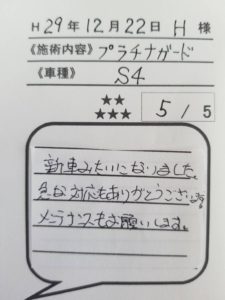 H29年12月22日 H 様
《施術内容》プラチナガード
《車種》 S4
★★
★★★ 5 / 5
新車みたいになりました。
急な対応もありがとうございます。
メンテナンスもお願いします。